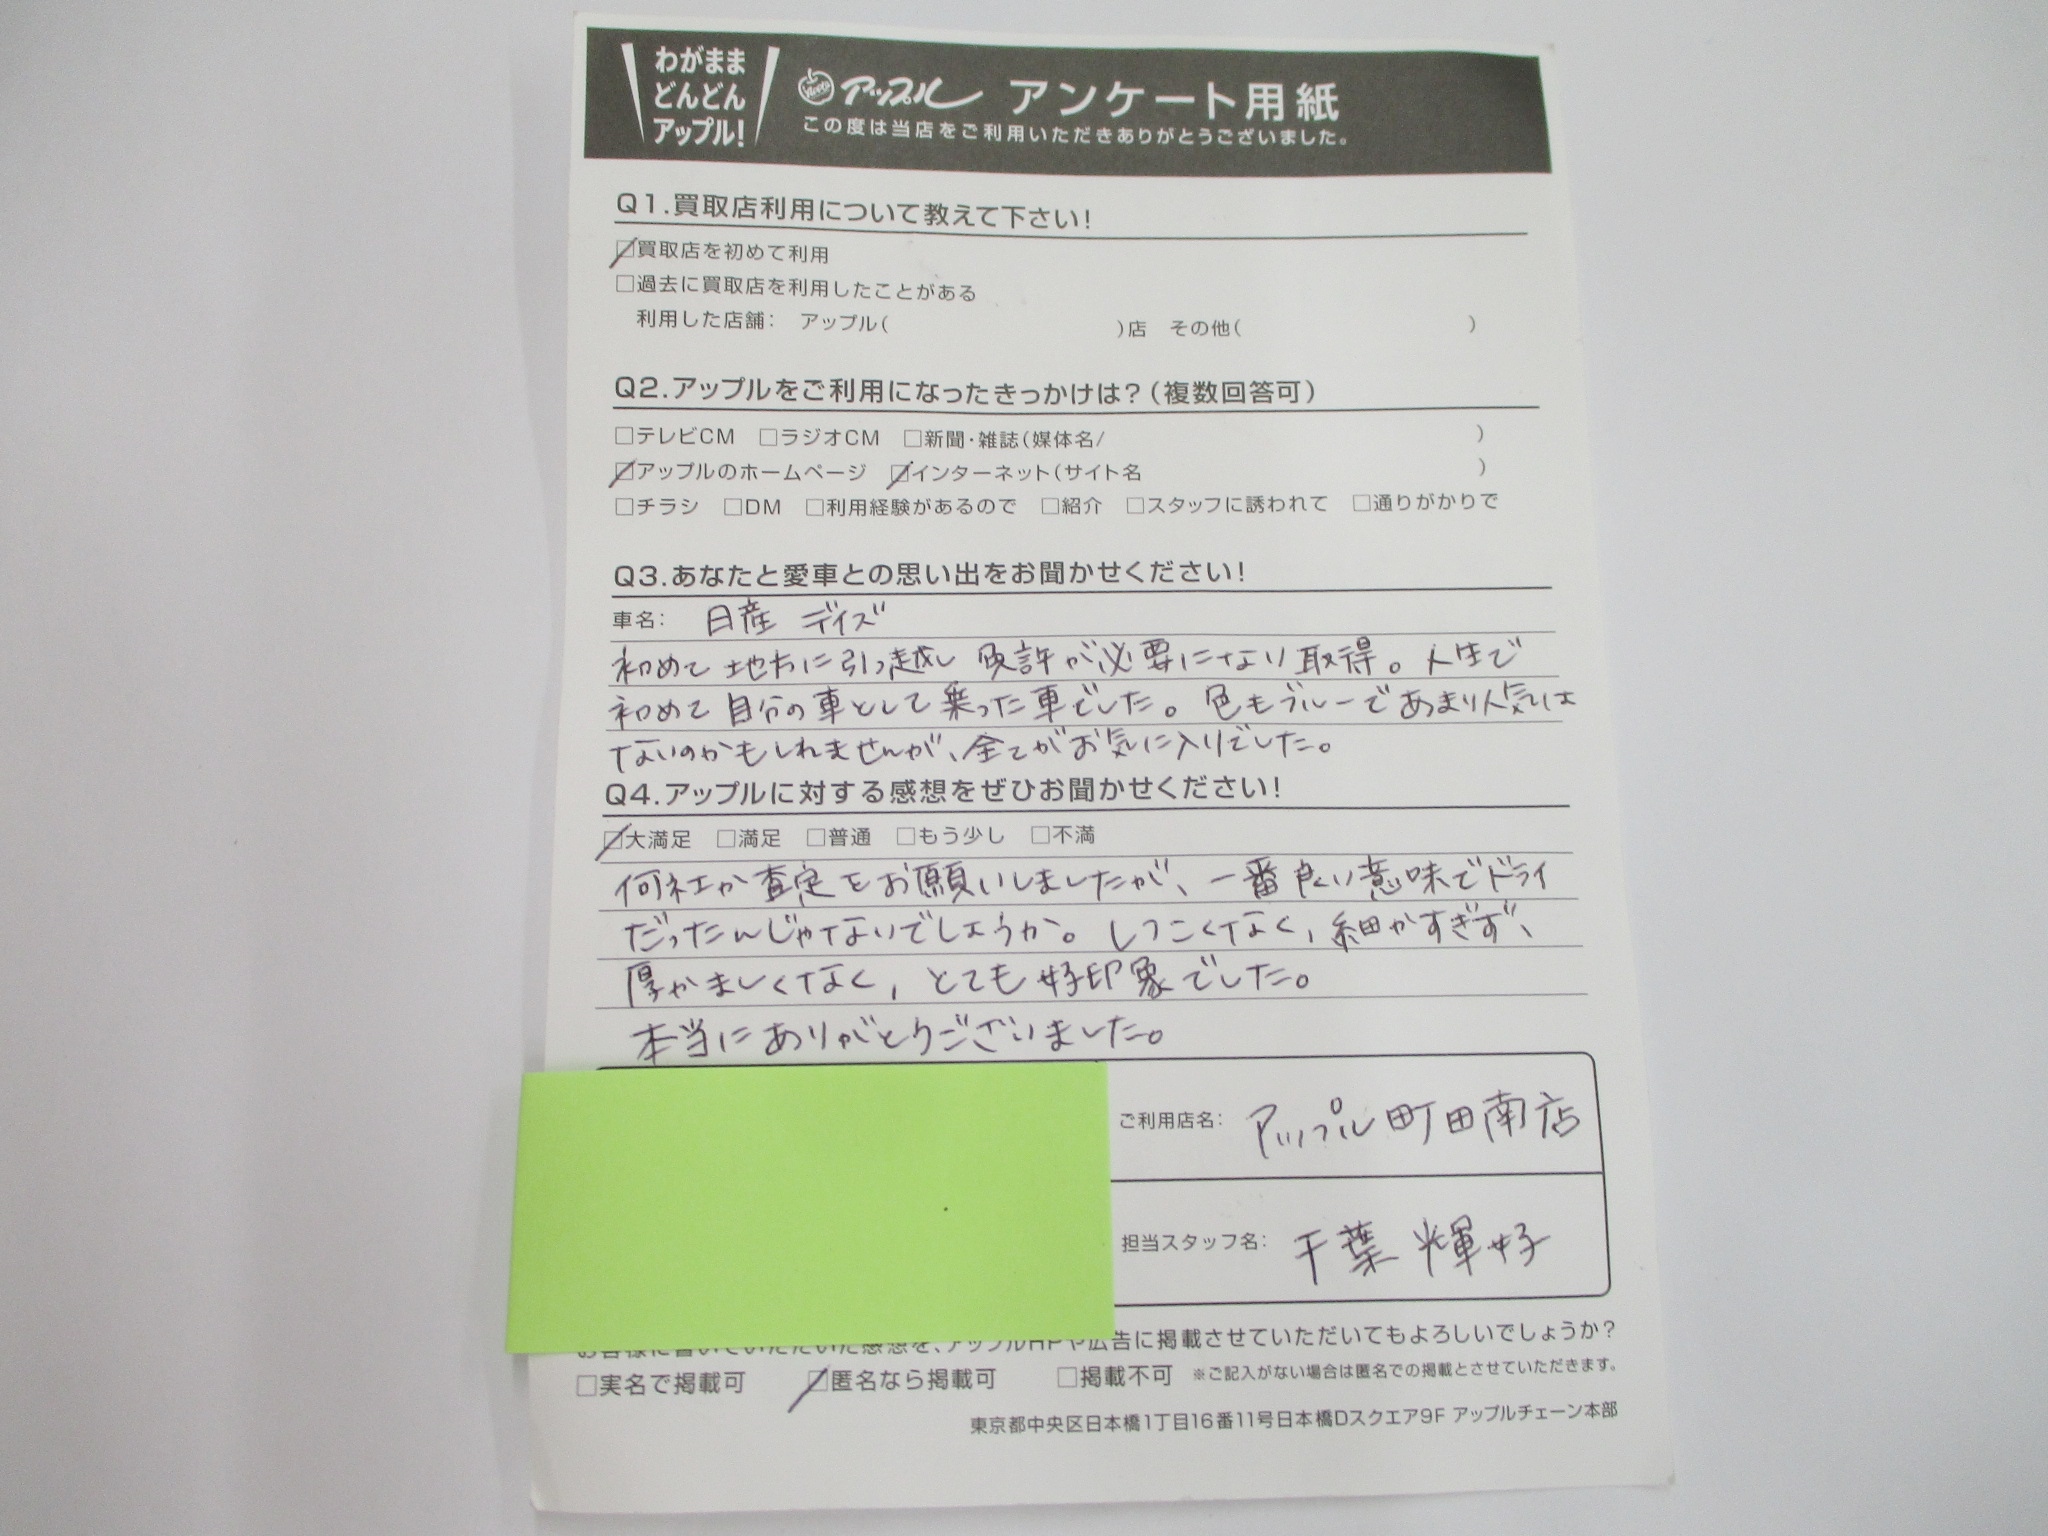 わがまま
どんどん
アップル!
アップル アンケート用紙
この度は当店をご利用いただきありがとうございました。
Q1.買取店利用について教えて下さい!
☑買取店を初めて利用
□過去に買取店を利用したことがある
利用した店舗: アップル( )店 その他( )
Q2.アップルをご利用になったきっかけは?(複数回答可)
□テレビCM □ラジオCM □新聞・雑誌(媒体名/ )
☑アップルのホームページ ☑インターネット(サイト名 )
□チラシ □DM □利用経験があるので □紹介 □スタッフに誘われて □通りがかりで
Q3.あなたと愛車との思い出をお聞かせください!
車名: 日産 デイズ
初めて地方に引っ越し 免許が必要になり取得。人生で
初めて自分の車として乗った車でした。色もブルーであまり人気は
ないのかもしれませんが、全てがお気に入りでした。
Q4.アップルに対する感想をぜひお聞かせください!
☑大満足 □満足 □普通 □もう少し □不満
何社か査定をお願いしましたが、一番良い意味でドライ
だったんじゃないでしょうか。しつこくなく、細かすぎず、
厚かましくなく、とても好印象でした。
本当にありがとうございました。
ご利用店名: アップル町田南店
担当スタッフ名: 千葉 輝好
お客様に書いていただいた感想を、アップルHPや広告に掲載させていただいてもよろしいでしょうか?
□実名で掲載可 ☑匿名なら掲載可 □掲載不可 ※ご記入がない場合は匿名での掲載とさせていただきます。
東京都中央区日本橋1丁目16番11号日本橋Dスクエア9F アップルチェーン本部